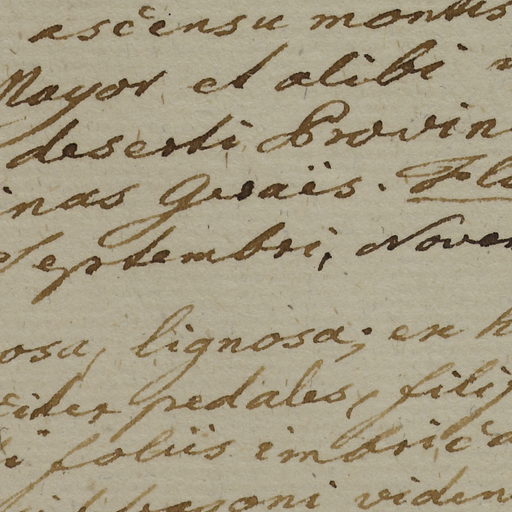 ascensu montis
Mayor et alibi
deserti Provin
inas Geraës. Fl
Septembri, Novem
osa, lignosa; ex h
pedales, filif
foliis imbrica
viden